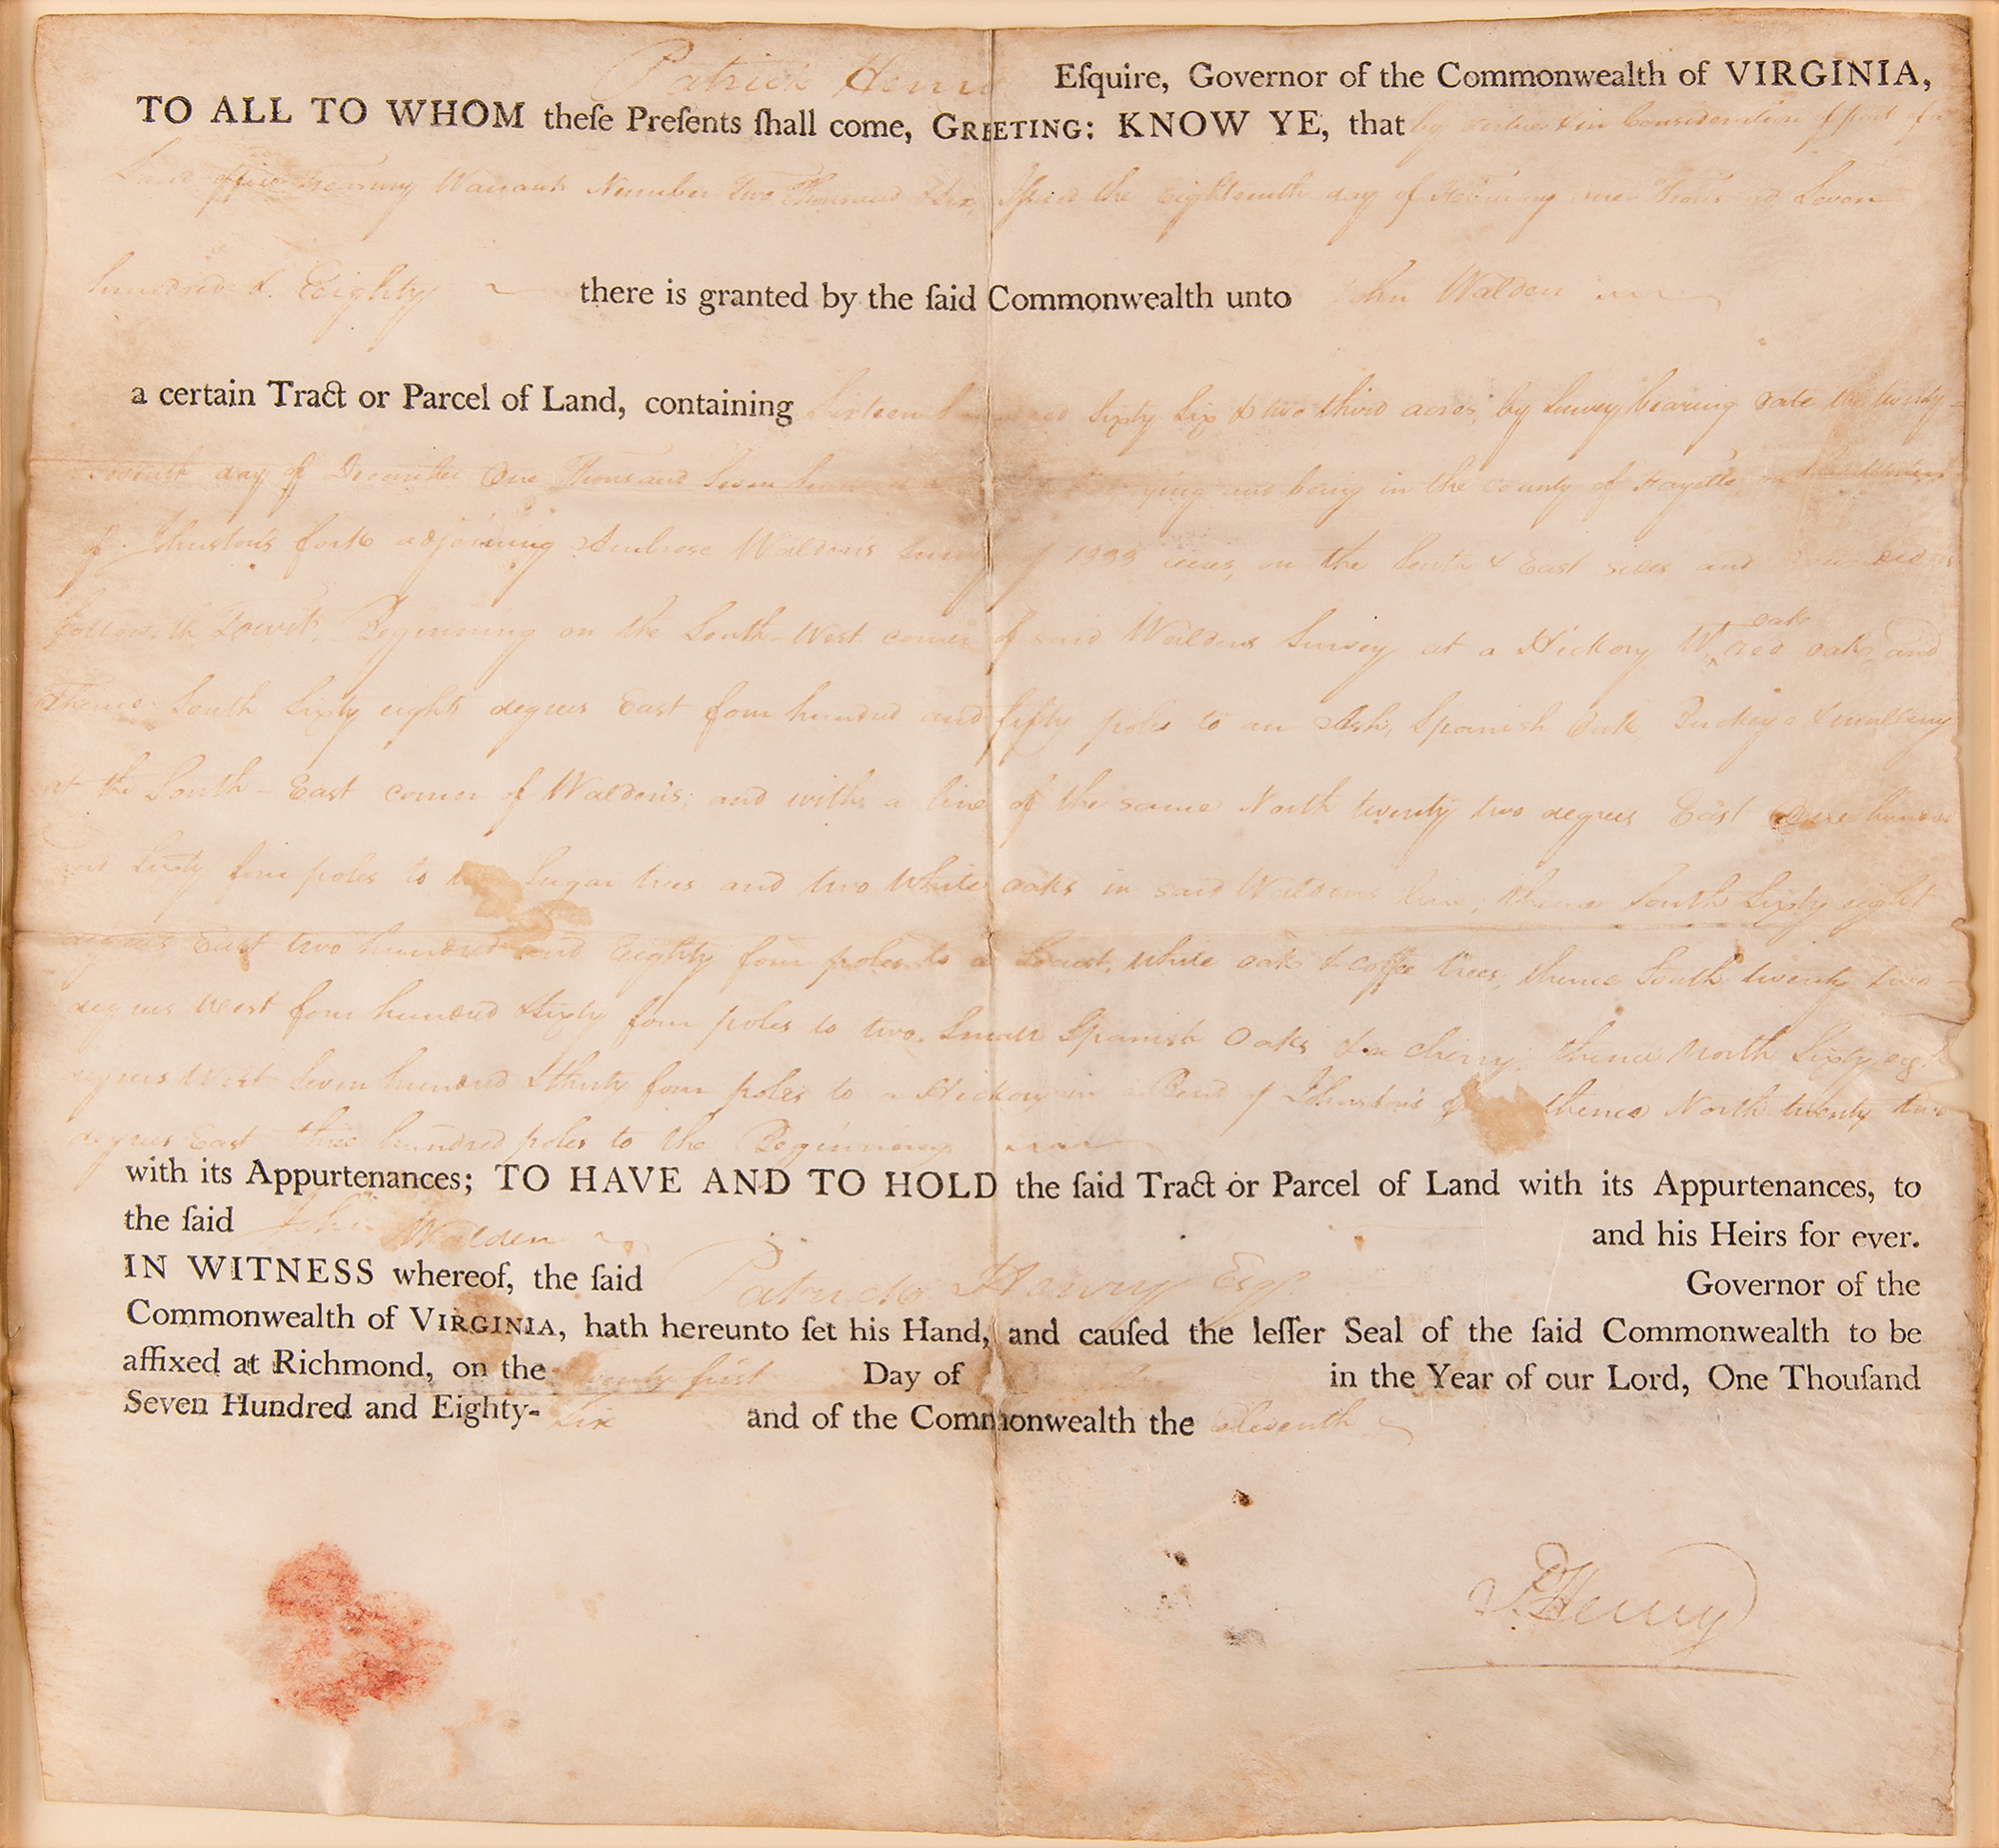 Patrick Henry Eſquire, Governor of the Commonwealth of VIRGINIA,
TO ALL TO WHOM theſe Preſents ſhall come, GREETING: KNOW YE, that by virtue & in Consideration of part of a
Land office Treasury Warrant Number Two Thousand & Six, Iſsued the Eighteenth day of February one Thousand Seven
hundred & Eighty there is granted by the ſaid Commonwealth unto John Walden
a certain Tract or Parcel of Land, containing Sixteen hundred Sixty Six & two third acres, by Survey bearing date the twenty-
seventh day of December One Thousand Seven hundred lying and being in the County of Fayette
of Johnston's fork adjoining Ambrose Waldens Survey of 1333 acres, on the South & East sides and bounded as
followeth Towit, Beginning on the South-West corner of said Waldens Survey at a Hickory W. oak red oak and
Thence South Sixty eight degrees East four hundred and fifty poles to an Ash, Spanish Oak Buckeye & mulberry
at the South-East corner of Walden's; and with a line of the same North twenty two degrees East One hundred
and Sixty four poles to two Sugar trees and two White oaks in said Waldens line; thence South Sixty eight
degrees East two hundred and Eighty four poles to a Locust, white oak & coffee trees, thence South twenty two
degrees West four hundred & Sixty four poles to two Small Spanish Oaks & a cherry; thence North Sixty eight
degrees West Seven hundred & thirty four poles to a Hickory in a Bend of Johnston's thence North twenty two
degrees East three hundred poles to the Beginning
with its Appurtenances; TO HAVE AND TO HOLD the ſaid Tract or Parcel of Land with its Appurtenances, to
the ſaid John Walden and his Heirs for ever.
IN WITNESS whereof, the ſaid Patrick Henry Esqr. Governor of the
Commonwealth of VIRGINIA, hath hereunto ſet his Hand, and cauſed the leſſer Seal of the ſaid Commonwealth to be
affixed at Richmond, on the twenty first Day of in the Year of our Lord, One Thouſand
Seven Hundred and Eighty- Six and of the Commonwealth the Eleventh
P. Henry